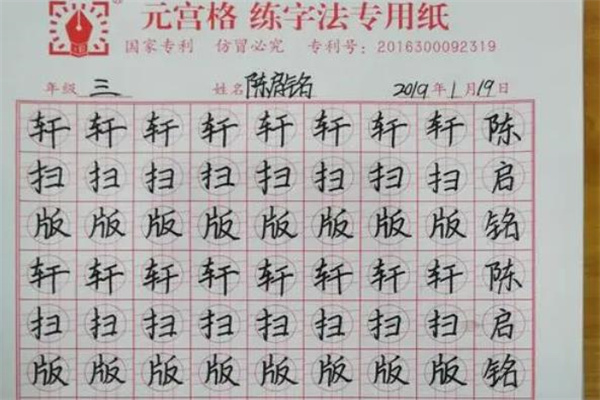 元宫格 练字法专用纸
国家专利 仿冒必究 专利号：2016300092319
年级 三 姓名 陈启铭 2019年1月19日
轩轩轩轩轩轩轩轩陈
扫扫扫扫扫扫扫扫启
版版版版版版版版铭
轩轩轩轩轩轩轩轩陈
扫扫扫扫扫扫扫扫启
版版版版版版版版铭